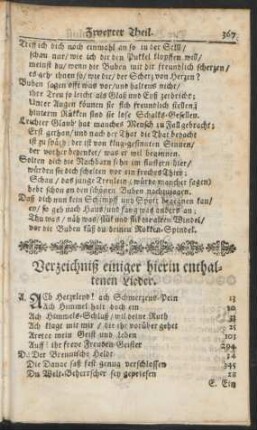 Zweyter Theil. 367
Treff ich dich noch einmahl an so in der Still/
schau nur/ wie ich dir den Puckel klopffen will/
meinst du/ wenn die Buben mit dir freundlich schertzen/
es geh ihnen so/ wie dir/ der Schertz von Hertzen?
Buben sagen offt was vor/ und haltens nicht/
ihre Treu so leicht als Glaß und Eyß zerbricht;
Unter Augen können sie sich freundlich stellen;
hinterm Rücken sind sie lose Schalks-Gesellen.
Leichter Glaub hat manches Mensch zu Fall gebracht;
Erst gethan/ und nach der That die That bedacht
ist zu spath; der ist von klug-gesinnten Sinnen,
der vorher bedencket/ was er wil beginnen.
Solten dich die Nachbarn sehen im
würden sie dich schelten vor ein freches Thier;
Schau/ das junge (würde mancher sagen)
Daß dich nun kein Schimpff und Spott begegnen kan/
so geh nach Hauß/und fang was anders an;
Thu was/ näh was/
vor die Buben hüt du deinen Rocken-Spindel.
Verzeichniß einiger hierin enthal-
tenen Lieder.
A. ACh Hertzleyd! ach Schmertzens-Pein 13
Ach Himmel halt doch ein 30
Ach Himmels-Schluß/ mit deine Ruth 33
Ach klage mit mir/ die ihr vorüber gehet 21
Aretee mein Geist und Leben 101
Auff! ihr freye Freuden-Geister 294
D: Der Brennische Heldt 14
Die Dantze saß fest genug verschlossen 345
Du Welt-Beherrscher sey gepriesen 12
E. Ein